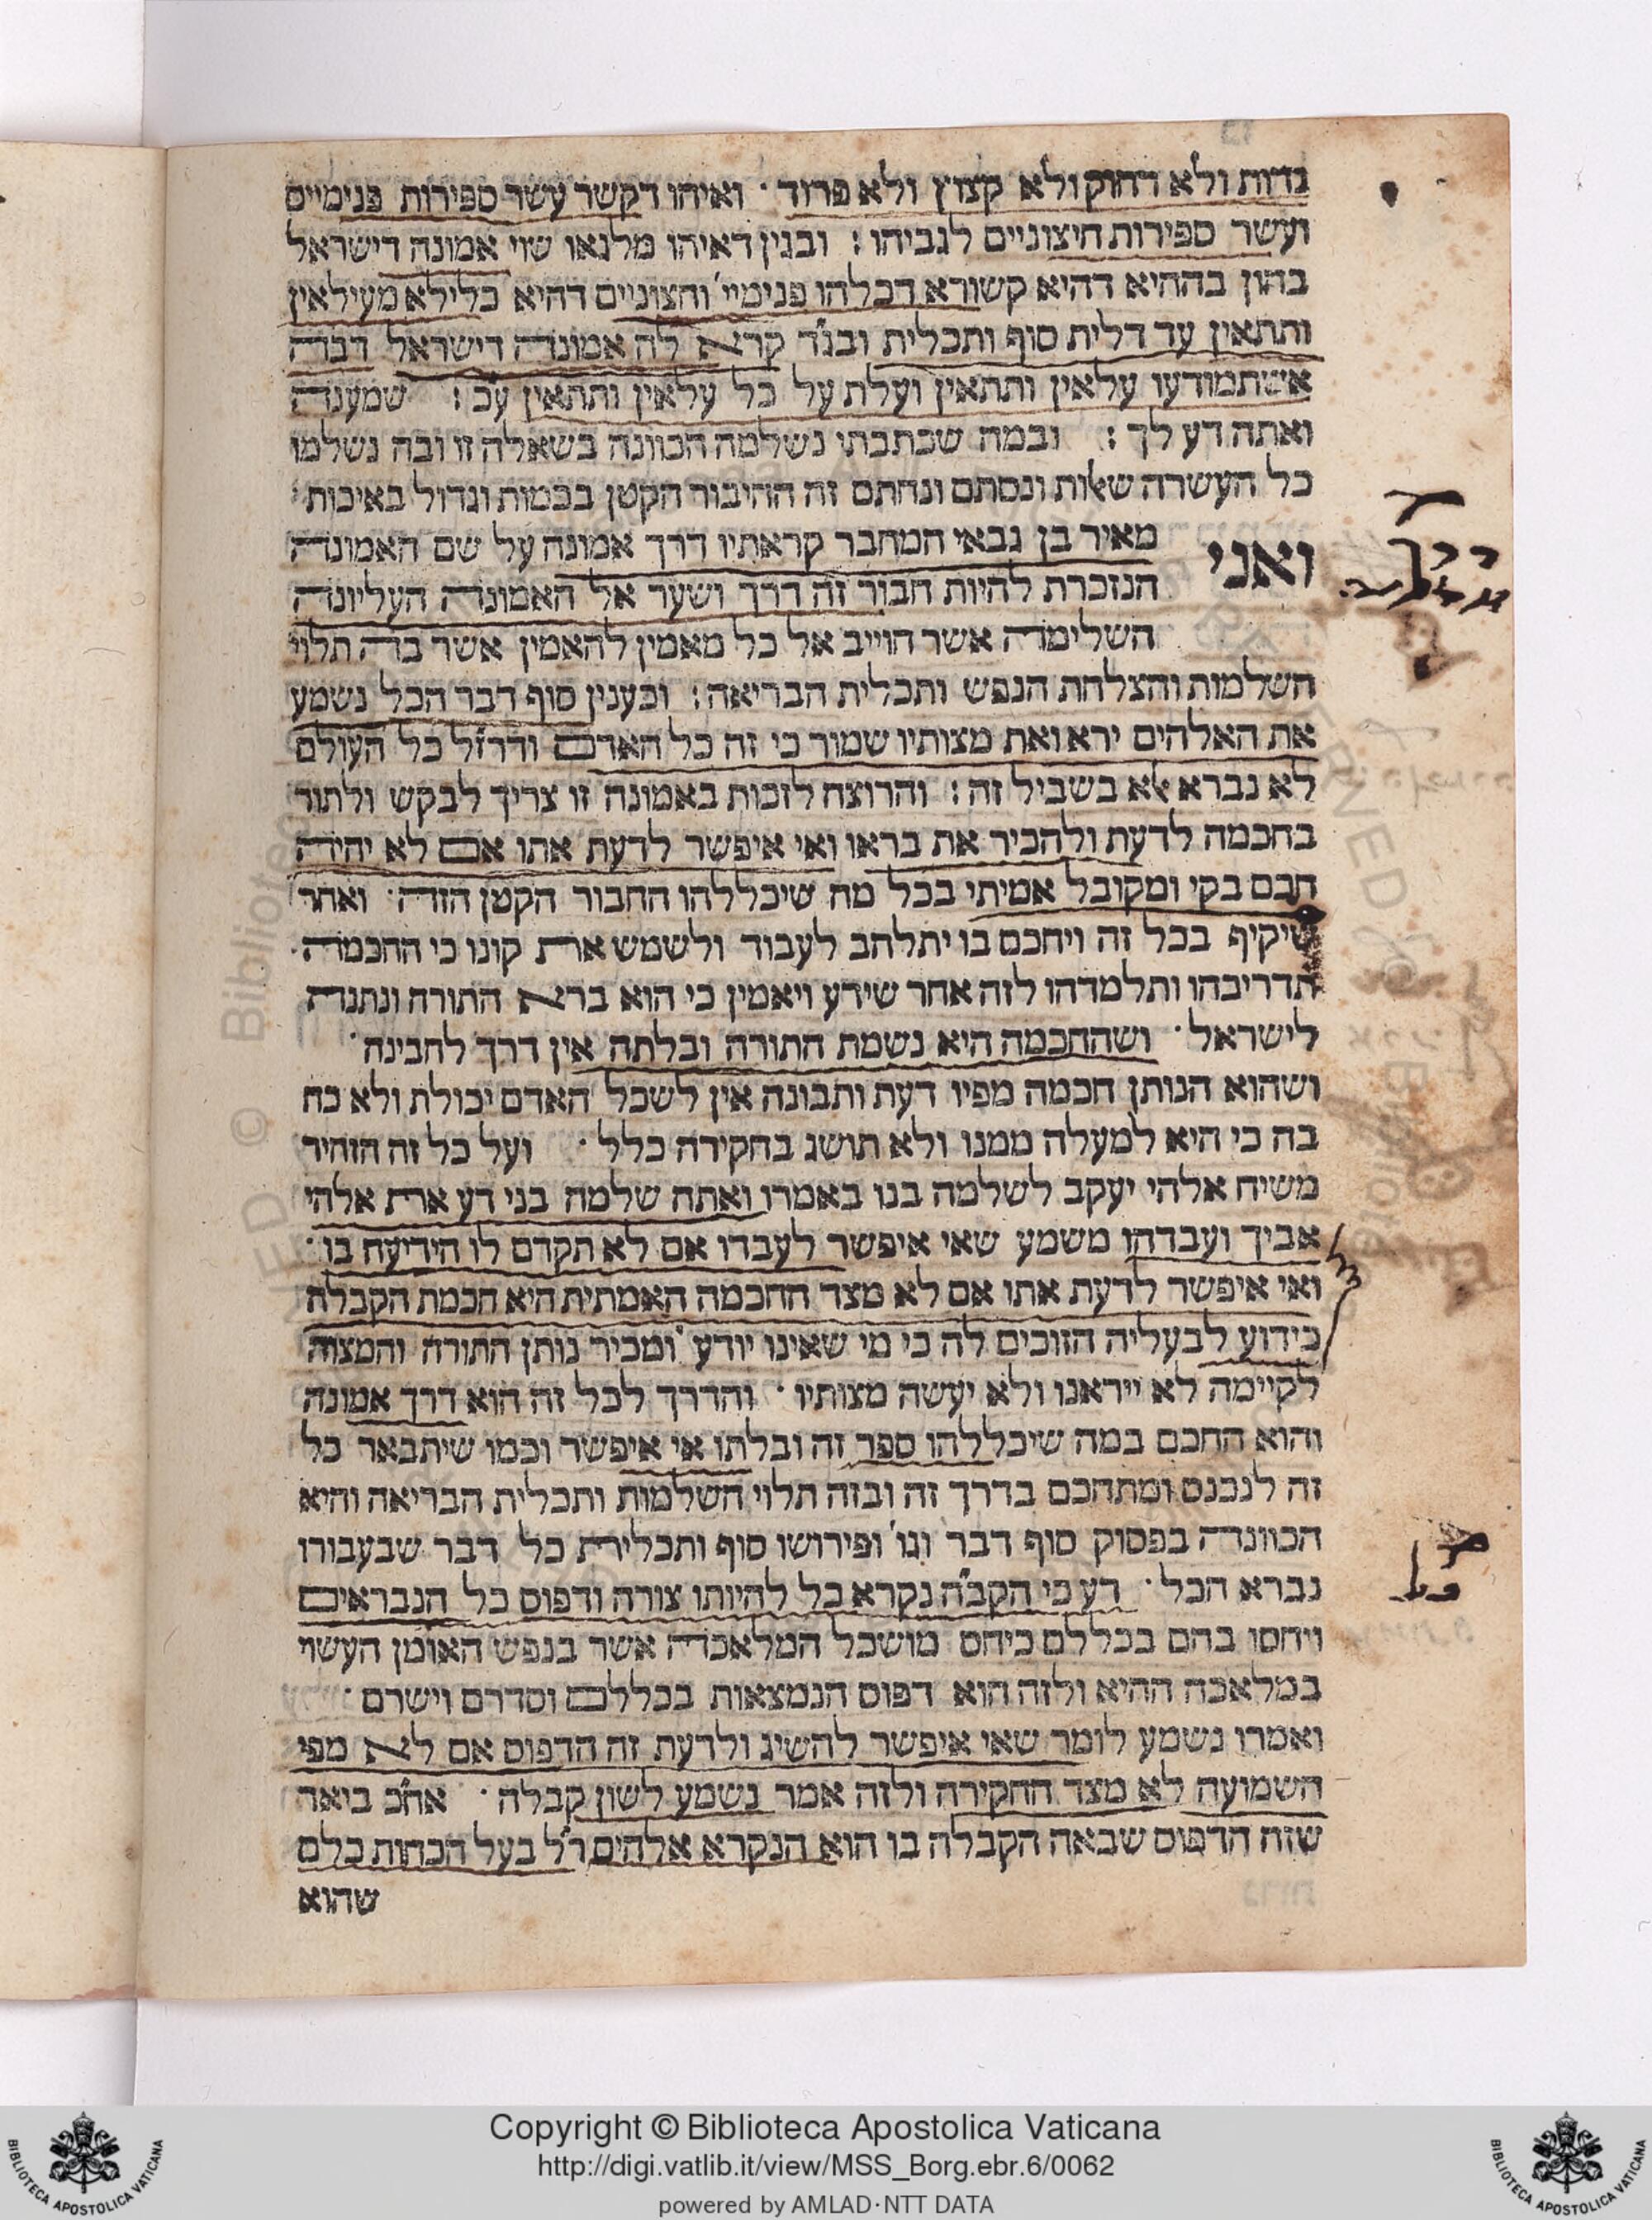 נדות ולא דחוק ולא קצוץ ולא פרוד · ואיהו דקשר עשר ספירות פנימיים
ועשר ספירות חיצוניים לגביהו : ובגין דאיהו מלגאו שוי אמונה דישראל
בהון בההיא דהיא קשורא דכלהו פנימיי' וחצוניים דהיא כלילא מעילאין
ותתאין עד דלית סוף ותכלית ובג"ד קרא לה אמונה דישראל דבה
אשתמודעו עלאין ותתאין ועלת על כל עלאין ותתאין ע"כ : שמענה
ואתה דע לך : ובמה שכתבתי נשלמה הכוונה בשאלה זו ובה נשלמו
כל העשרה שאלות ונסתם ונחתם זה החיבור הקטן בכמות וגדול באיכות :
ואני מאיר בן גבאי המחבר קראתיו דרך אמונה על שם האמונה
הנזכרת להיות חבור זה דרך ושער אל האמונה העליונה
השלימה אשר חוייב אל כל מאמין להאמין אשר בה תלוי
השלמות והצלחת הנפש ותכלית הבריאה : וכענין סוף דבר הכל נשמע
את האלהים ירא ואת מצותיו שמור כי זה כל האדם ודרז"ל כל העולם
לא נברא אלא בשביל זה : והרוצה לזכות באמונה זו צריך לבקש ולתור
בחכמה לדעת ולהכיר את בראו ואי איפשר לדעת אתו אם לא יהיה
חכם בקי ומקובל אמיתי בכל מה שיכללהו החבור הקטן הזה · ואחר
שיקיף בכל זה ויחכם בו יתלהב לעבוד ולשמש את קונו כי החכמה ·
תדריכהו ותלמדהו לזה אחר שידע ויאמין כי הוא ברא התורה ונתנה
לישראל · ושהחכמה היא נשמת התורה ובלתה אין דרך להבינה ·
ושהוא הנותן חכמה מפיו דעת ותבונה אין לשכל האדם יכולת ולא כח
בה כי היא למעלה ממנו ולא תושג בחקירה כלל · ועל כל זה הזהיר
משיח אלהי יעקב לשלמה בנו באמרו ואתה שלמה בני דע את אלהי
אביך ועבדהו משמע שאי איפשר לעבדו אם לא תקדם לו הידיעה בו ·
ואי איפשר לדעת אתו אם לא מצד החכמה האמתית היא חכמת הקבלה
כידוע לבעליה הזוכים לה כי מי שאינו יודע ומכיר נותן התורה והמצוה
לקיימה לא ייראנו ולא יעשה מצותיו · והדרך לכל זה הוא דרך אמונה
והוא החכם במה שיכללהו ספר זה ובלתו אי איפשר וכמו שיתבאר כל
זה לנכנס ומתחכם בדרך זה ובזה תלוי השלמות ותכלית הבריאה והיא
הכוונה בפסוק סוף דבר וגו' ופירושו סוף ותכלית כל דבר שבעבורו
נברא הכל · דע כי הקב"ה נקרא כל להיותו צורה ודפוס כל הנבראים
ויחסו בהם בכללם כיחס מושכל המלאכה אשר בנפש האומן העשוי
במלאכה ההיא ולזה הוא דפוס הנמצאות בכללם וסדרם וישרם ·
ואמרו נשמע לומר שאי איפשר להשיג ולדעת זה הדפוס אם לא מפי
השמועה לא מצד החקירה ולזה אמר נשמע לשון קבלה · אח"כ ביאר
שזה הדפוס שבאה הקבלה בו הוא הנקרא אלהים ר"ל בעל הכחות כלם
שהוא
Copyright © Biblioteca Apostolica Vaticana
http://digi.vatlib.it/view/MSS_Borg.ebr.6/0062
powered by AMLAD·NTT DATA
BIBLIOTECA APOSTOLICA VATICANA
BIBLIOTECA APOSTOLICA VATICANA